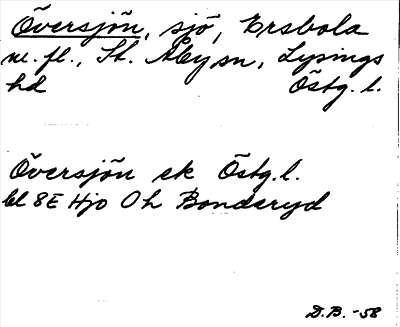 Översjön, sjö, Ersbola
ne. fl., St. Åby sn, Lysings
hd Östg. l.
Översjön ek Östg. l.
bl 8E Hjo Öh Bonderyd
D.B. -58